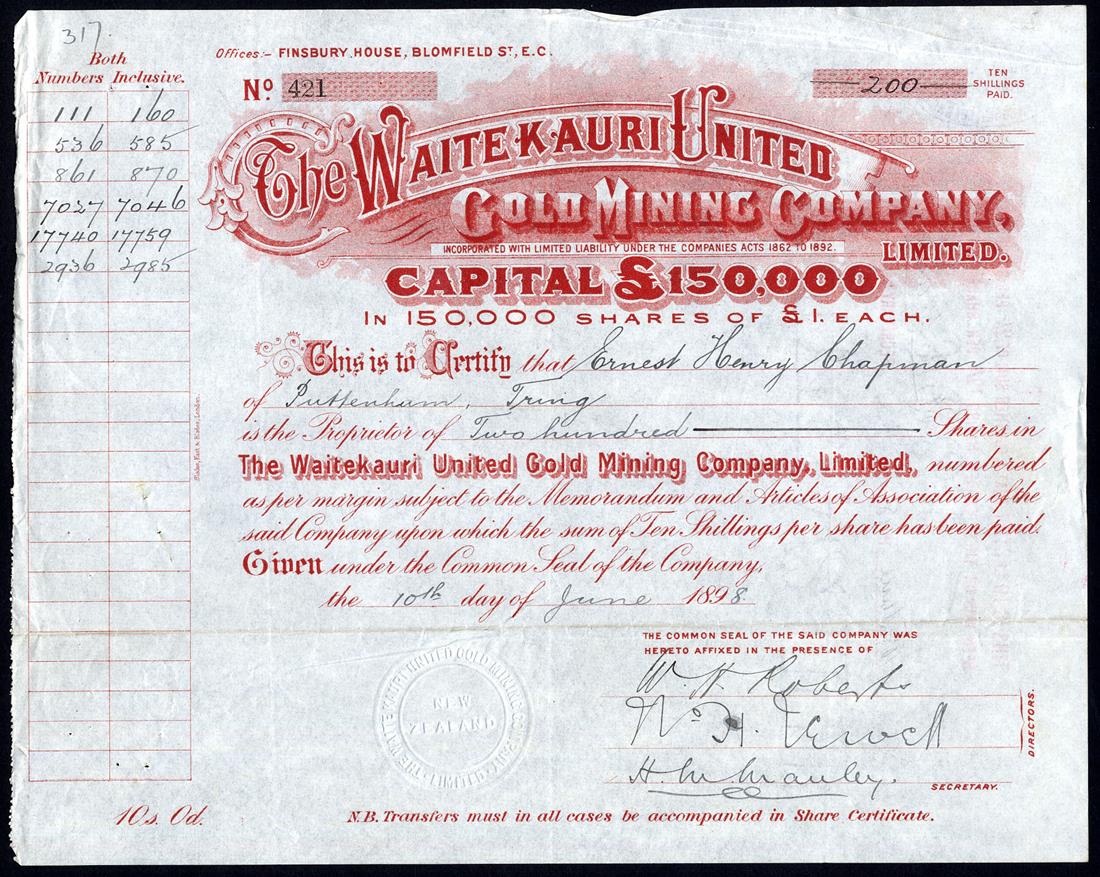 317.
Both
Numbers Inclusive.
111 160
536 585
861 870
7027 7046
17740 17759
2936 2985
Offices:- FINSBURY HOUSE, BLOMFIELD ST, E.C.
No. 421
200
TEN
SHILLINGS
PAID.
The WAITEKAURI UNITED
GOLD MINING COMPANY,
LIMITED.
INCORPORATED WITH LIMITED LIABILITY UNDER THE COMPANIES ACTS 1862 TO 1892.
CAPITAL £150,000
IN 150,000 SHARES OF £1. EACH.
This is to Certify that Ernest Henry Chapman
of Puttenham, Tring
is the Proprietor of Two hundred Shares in
The Waitekauri United Gold Mining Company, Limited, numbered
as per margin subject to the Memorandum and Articles of Association of the
said Company upon which the sum of Ten Shillings per share has been paid.
Given under the Common Seal of the Company,
the 10th day of June 1898.
THE COMMON SEAL OF THE SAID COMPANY WAS
HERETO AFFIXED IN THE PRESENCE OF
W. H. Roberts
DIRECTORS.
H. M. Manley.
SECRETARY.
THE WAITEKAURI UNITED GOLD MINING COMPANY LIMITED
NEW
ZEALAND
10s. 0d.
N.B. Transfers must in all cases be accompanied in Share Certificate.